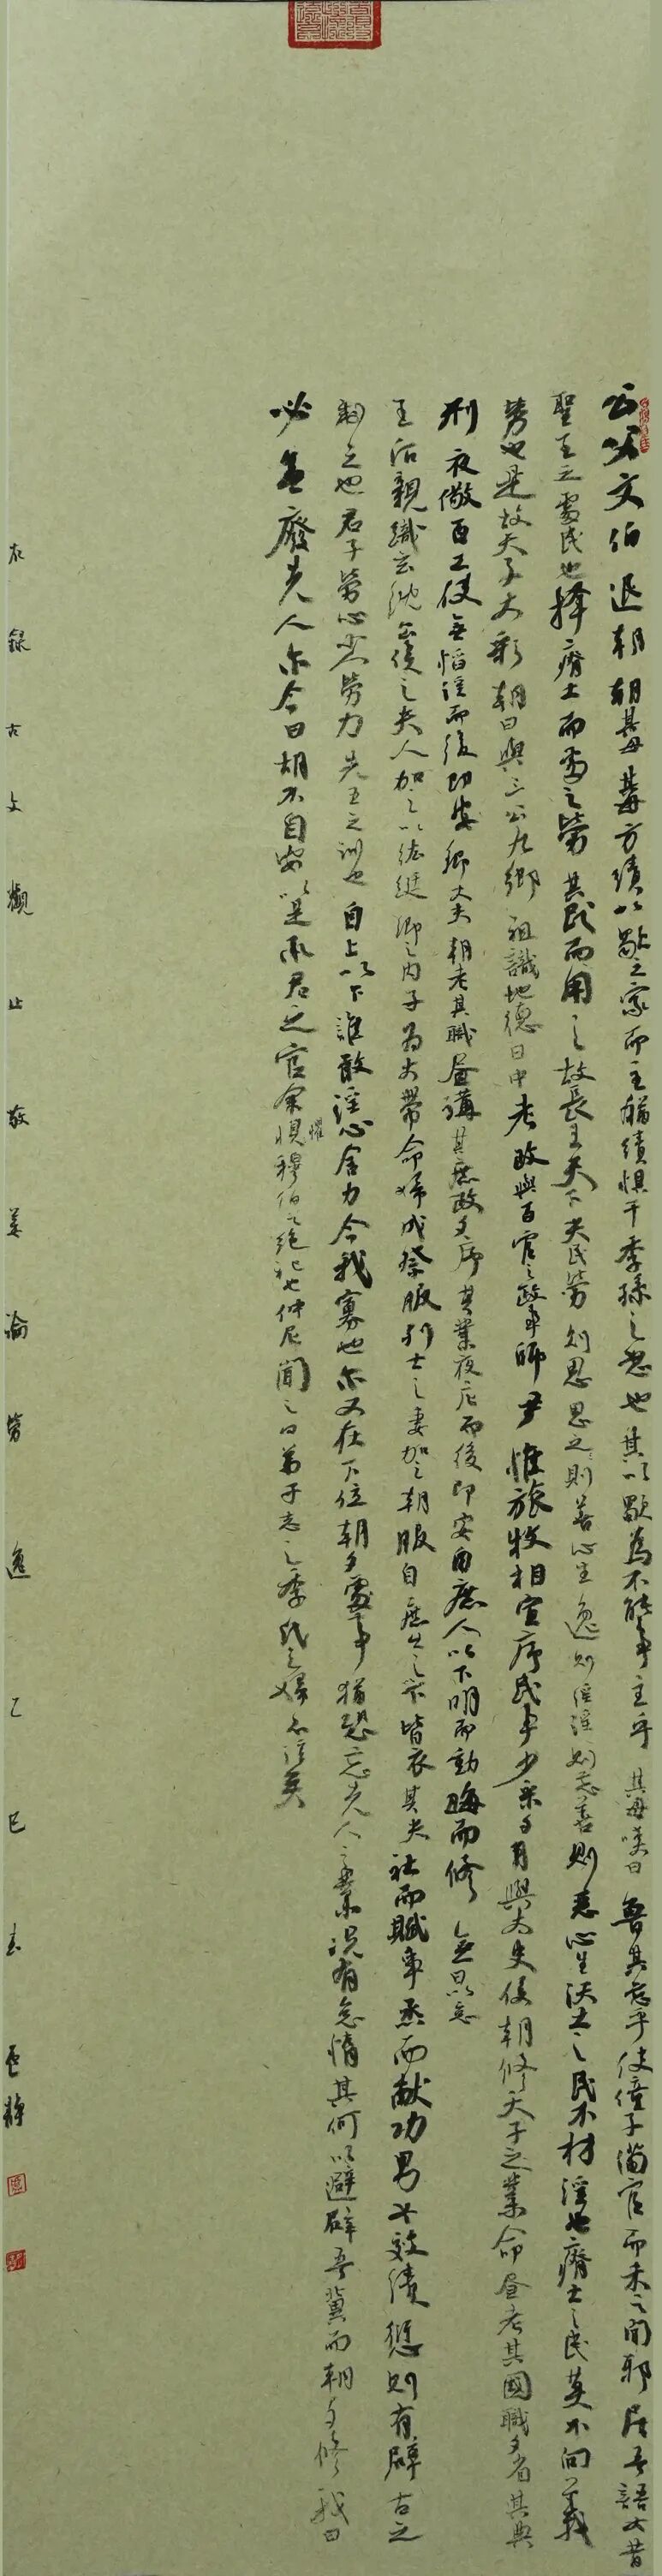 公父文伯退朝朝其母其母方績以歜之家而主猶績懼干季孫之怒也其以歜為不能事主乎其母嘆曰魯其亡乎使僮子備官而未之聞邪居吾語女昔
聖王之處民也擇瘠土而處之勞其民而用之故長王天下夫民勞則思思之則善心生逸則淫淫則忘善則惡心生沃土之民不材淫也瘠土之民莫不向義
勞也是故天子大彩朝日與三公九卿祖識地德日中考政與百官之政事師尹惟旅牧相宣序民事少采夕月與大史侯朝修天子之業命晝考其國職夕省其典
刑夜儆百工使無慆淫而後即安卿大夫朝考其職晝講其庶政夕序其業夜庀而後即安自庶人以下明而動晦而修無日以怠
王后親織玄紞公侯之夫人加之以紘綖卿之內子為大帶命婦成祭服列士之妻加之朝服自庶士以下皆衣其夫社而賦事烝而獻功男女效績愆則有辟古之
制之也君子勞心小人勞力先王之訓也自上以下誰敢淫心舍力今我寡也尔又在下位朝夕處事猶恐忘先人之業況有怠惰其何以避辟吾冀而朝夕修我曰
必無廢先人尔今曰胡不自安以是承君之官余懼穆伯之絕祀也仲尼聞之曰弟子志之季氏之婦不淫矣
右錄古文觀止敬姜論勞逸乙巳春